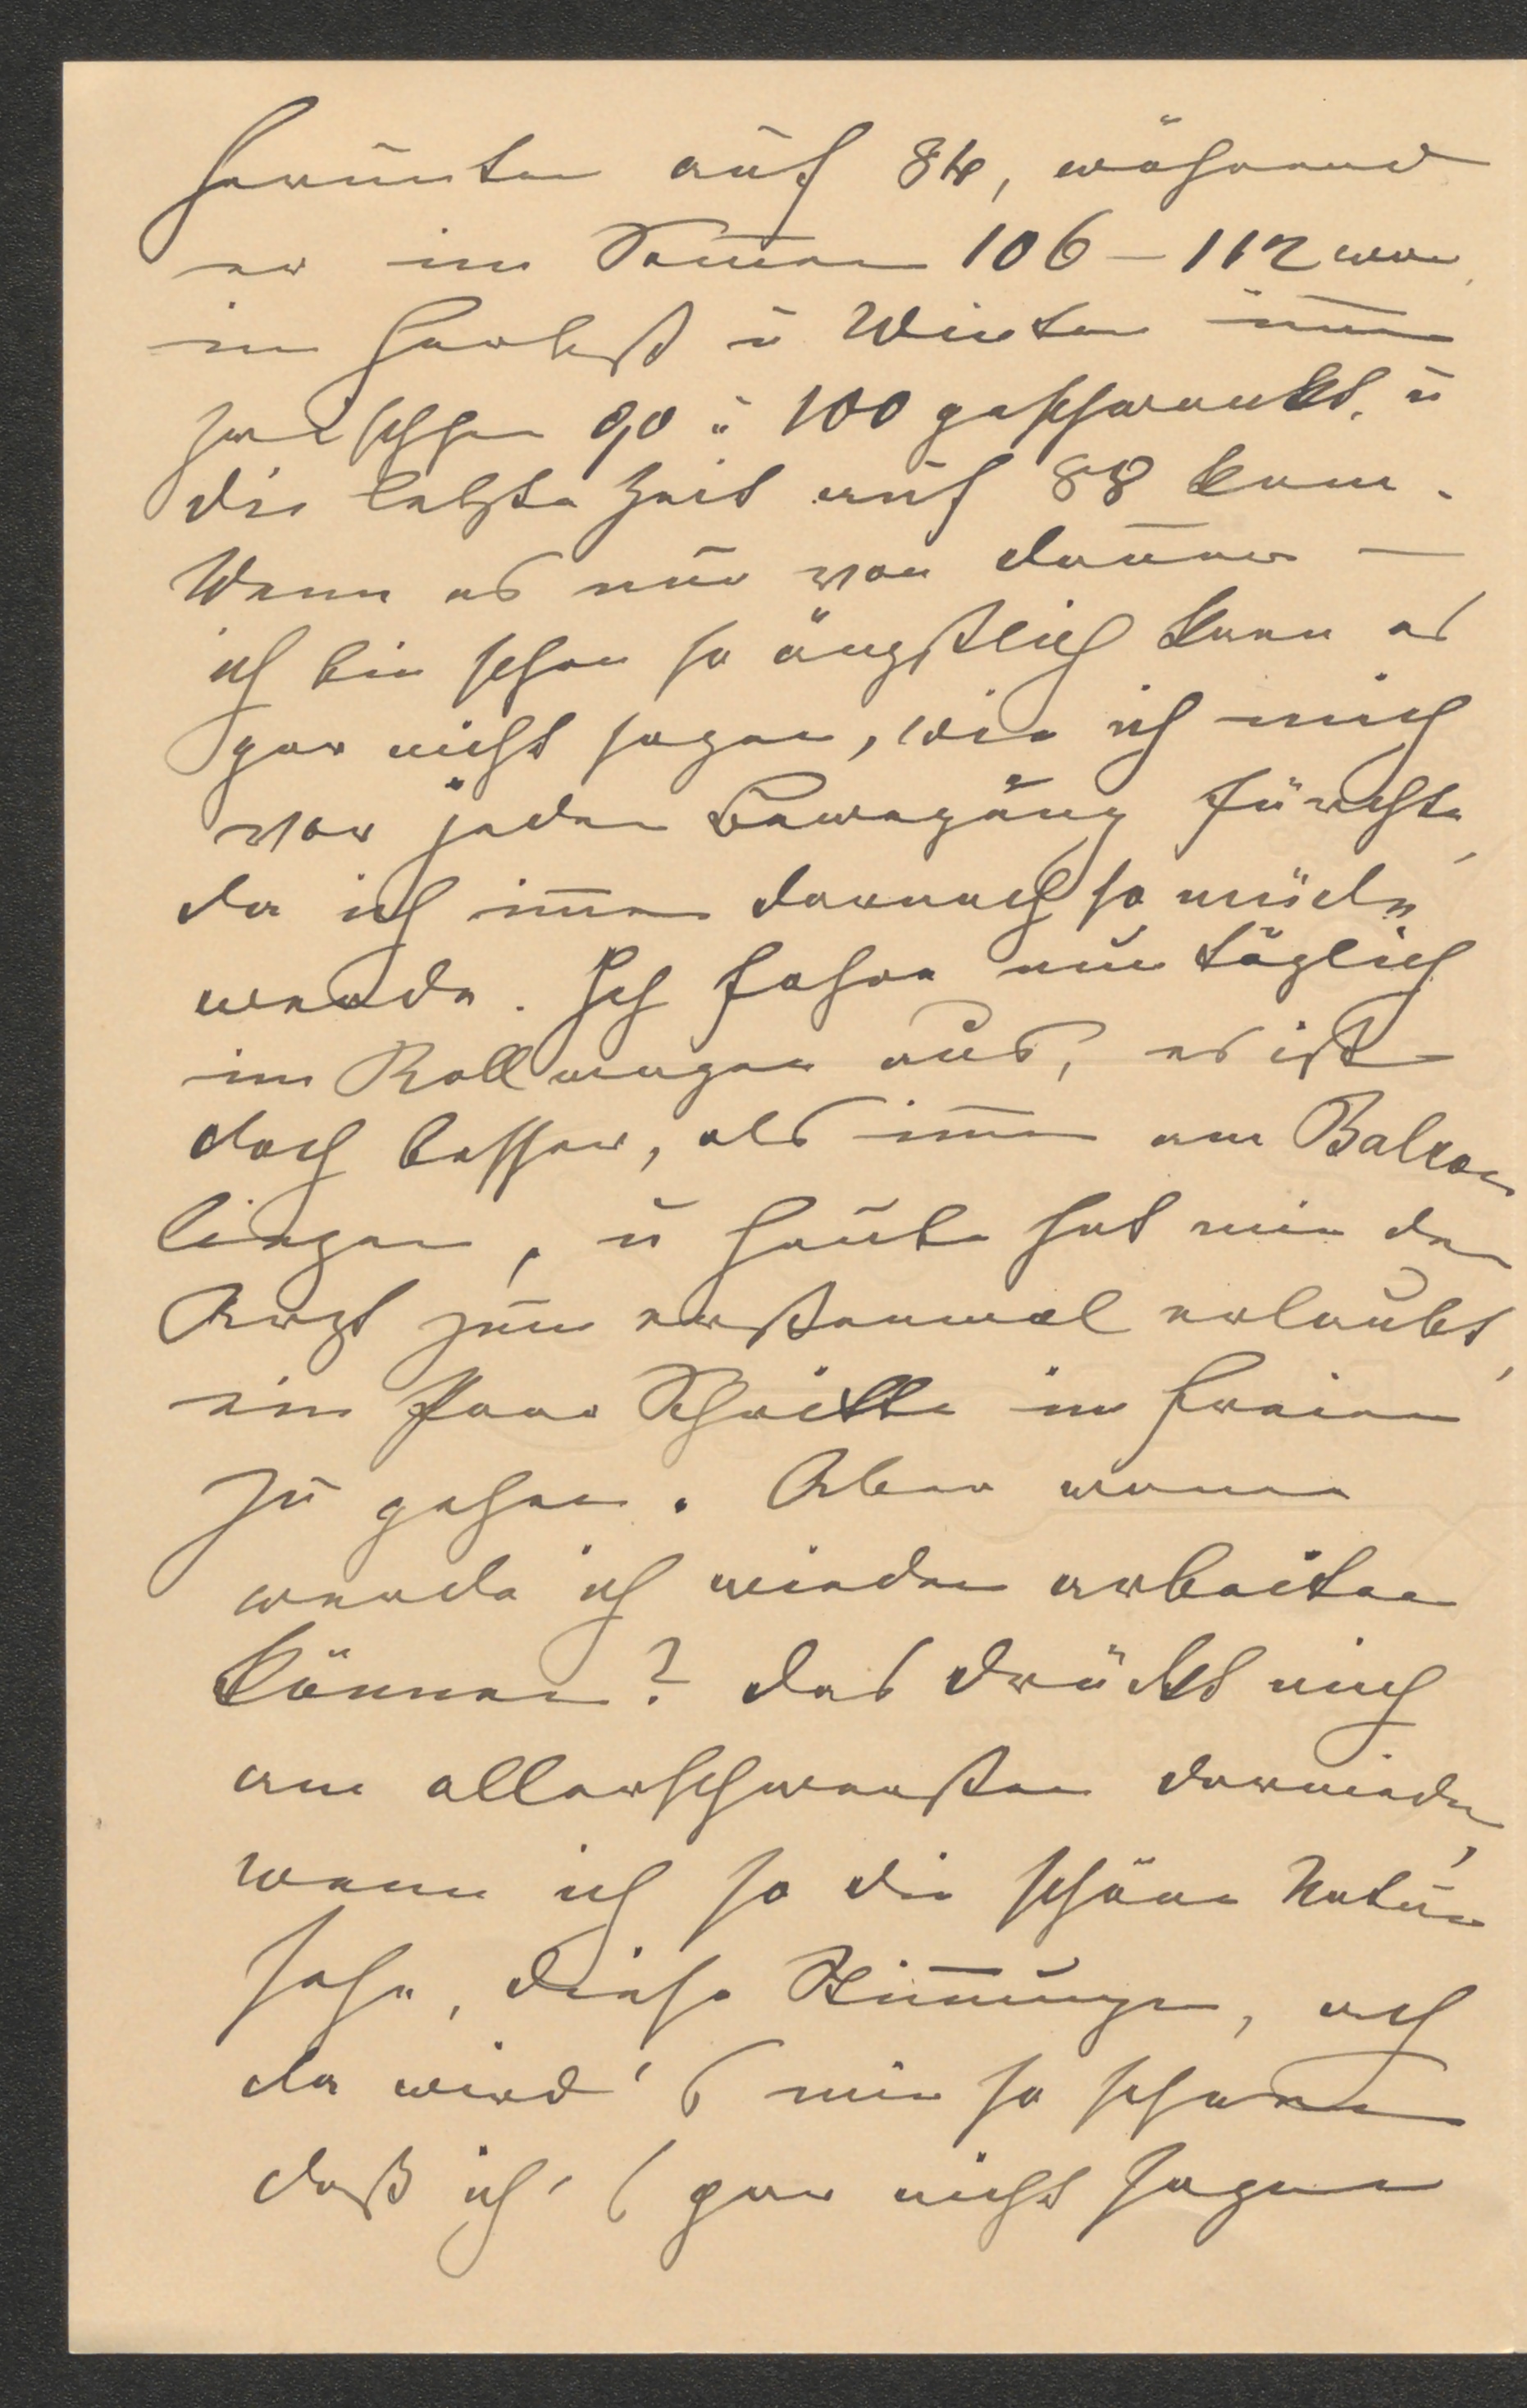 herunten auf 84, während
er im Som̅er 106 – 112 war
im Herbst u Winter im̅er
zwischen 90 u 100 geschwankt, u
die letzte Zeit auf 88 kam.
Wenn es nur von Dauer –
ich bin schon so ängstlich kann es
gar nicht sagen, wie ich mich
vor jeder Bewegung fürchte,
da ich im̅er darnach so müde
werde. Ich fahre nun täglich
im Rollwagen aus, es ist
doch besser, als im̅er am Balkon
liegen, u heute hat mir der
Arzt zum erstenmal erlaubt,
ein Paar Schritte im Freien
zu gehen. Aber wann
werde ich wieder arbeiten
können? das drückt mich
am allerschwersten darnieder,
wenn ich so die schöne Natur
sehe, diese Stim̅ungen, ach
da wird's mir so schwer
daß ich's gar nicht sagen